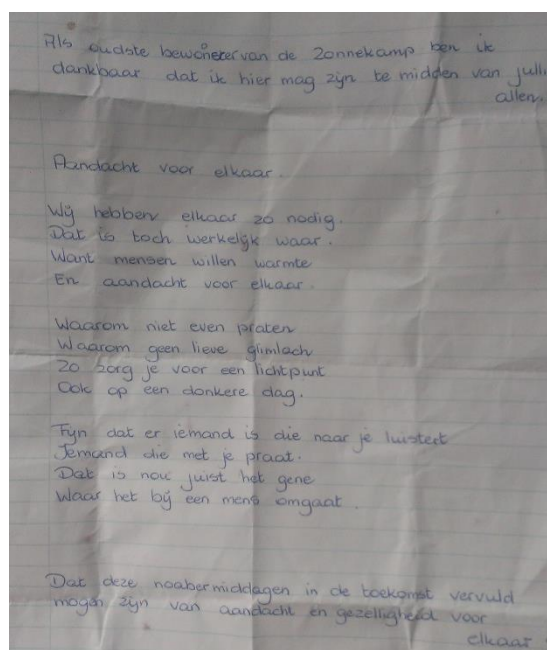 Als oudste bewoner van de Zonnekamp ben ik
dankbaar dat ik hier mag zijn te midden van
allen.
Aandacht voor elkaar.
Wij hebben elkaar zo nodig.
Dat is toch werkelijk waar.
Want mensen willen warmte
En aandacht voor elkaar.
Waarom niet even praten
Waarom geen lieve glimlach
Zo zorg je voor een lichtpunt
Ook op een donkere dag.
Fijn dat er iemand is die naar je luistert
Iemand die met je praat.
Dat is nou juist het gene
Waar het bij een mens omgaat.
Dat deze noabermiddagen in de toekomst vervuld
mogen zijn van aandacht en gezelligheid voor
elkaar